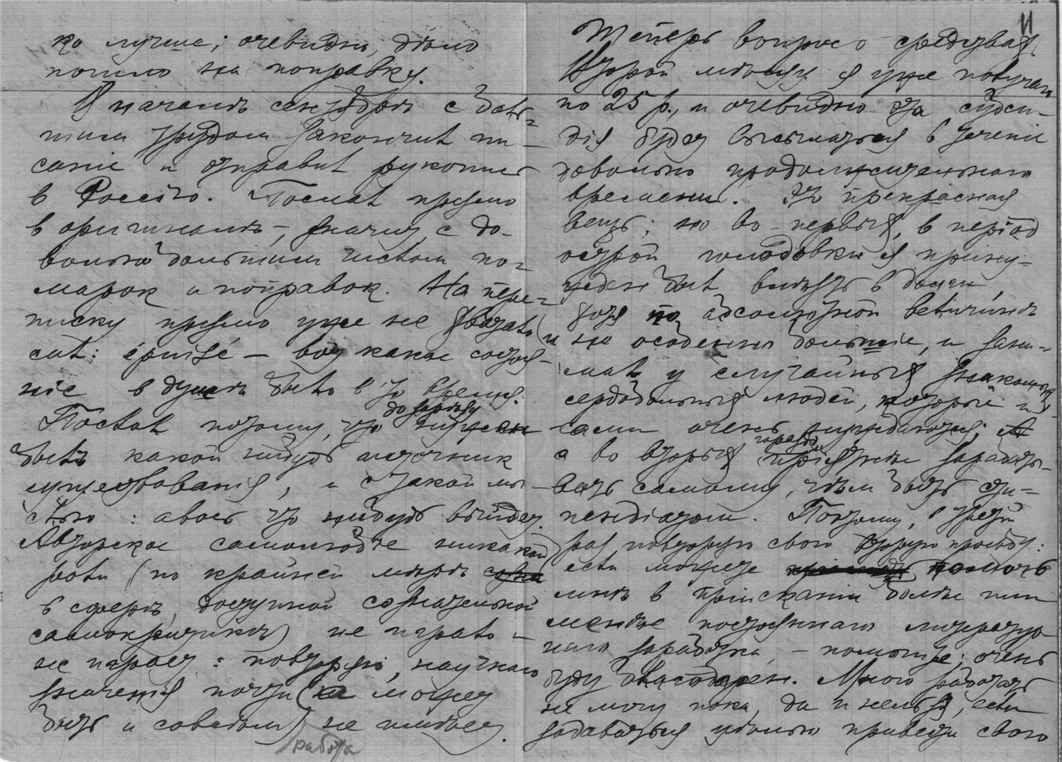 ко лучше; очевидно, дѣло
пошло на поправку.
В началѣ сентября с боль-
шим трудом закончил пи-
сание и отправил рукопись
в Россію. Послал прямо
в оригиналѣ, значит, с до-
вольно большим числом по-
марок и поправок. На пере-
писку прямо уже не хватало
сил: épuisé — вот какое состоя-
ніе в душѣ было в то время.
Послал потому, что до зарѣзу нужен
был какой нибудь источник
существованія, и с такой мы-
слью: авось что нибудь выйдет.
Авторское самолюбіе никакой
роли (по крайней мѣрѣ
в сферѣ, доступной сознательной
самокритикѣ) не играло и
не играет: повторяю, научнаго
значенія почти (а может
быть и совсѣм) не имѣет.
работа
11
Теперь вопрос о средствах.
Второй мѣсяц я уже получаю
по 25 р., и очевидно эта субси-
дія будет высылаться в теченіе
довольно продолжительнаго
времени. Это прекрасная
вещь; но во-первых, в період
острой голодовки я прину-
жден был влѣзть в долги,
хотя по абсолютной величинѣ
и не особенно большіе, и зани-
мал у случайных знакомых,
сердобольных людей, которые и
сами очень нуждаются;
а во вторых, гораздо пріятнѣе зарабаты-
вать самому, чѣм быть сти-
пендіатом. Поэтому, в третій
раз повторяю свою просьбу:
если можете помочь
мнѣ в пріисканіи болѣе или
менѣе постояннаго литератур-
наго заработка, — помогите; очень
буду благодарен. Много работать
не могу пока, да и нельзя, если
задаваться цѣлью привести свою